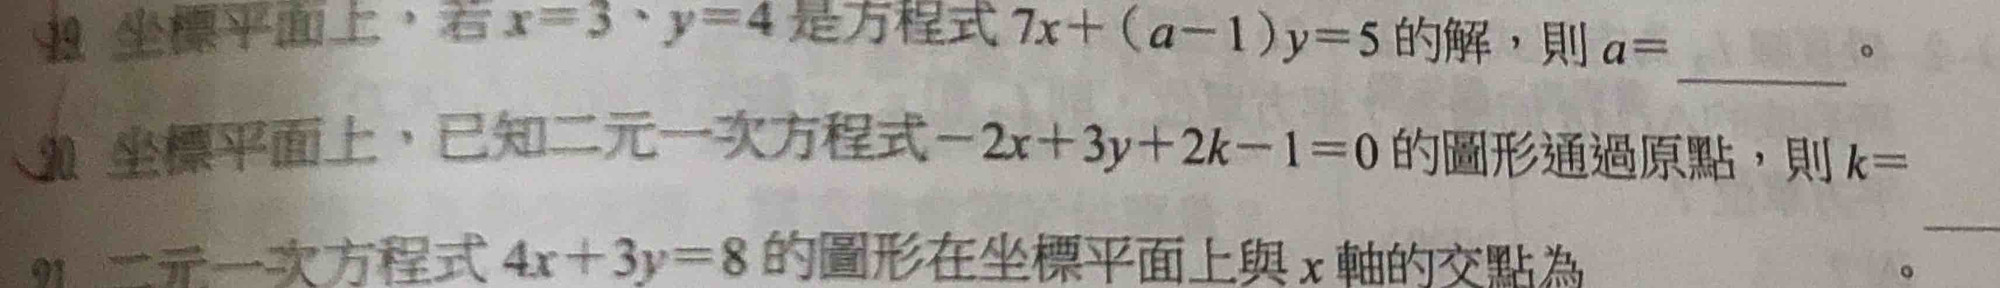 19 坐標平面上，若 x=3、y=4 是方程式 7x+(a-1)y=5 的解，則 a=______。
20 坐標平面上，已知二元一次方程式-2x+3y+2k-1=0 的圖形通過原點，則 k=______
21 二元一次方程式 4x+3y=8 的圖形在坐標平面上與 x 軸的交點為　　　。